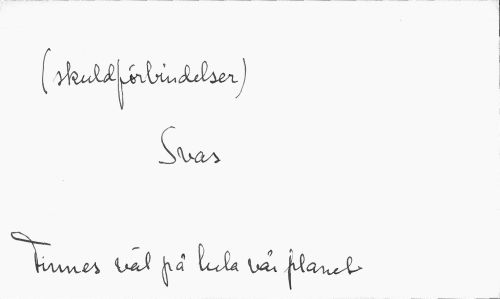 (skuldförbindelser)
Svas
Finnes väl på hela vår planet